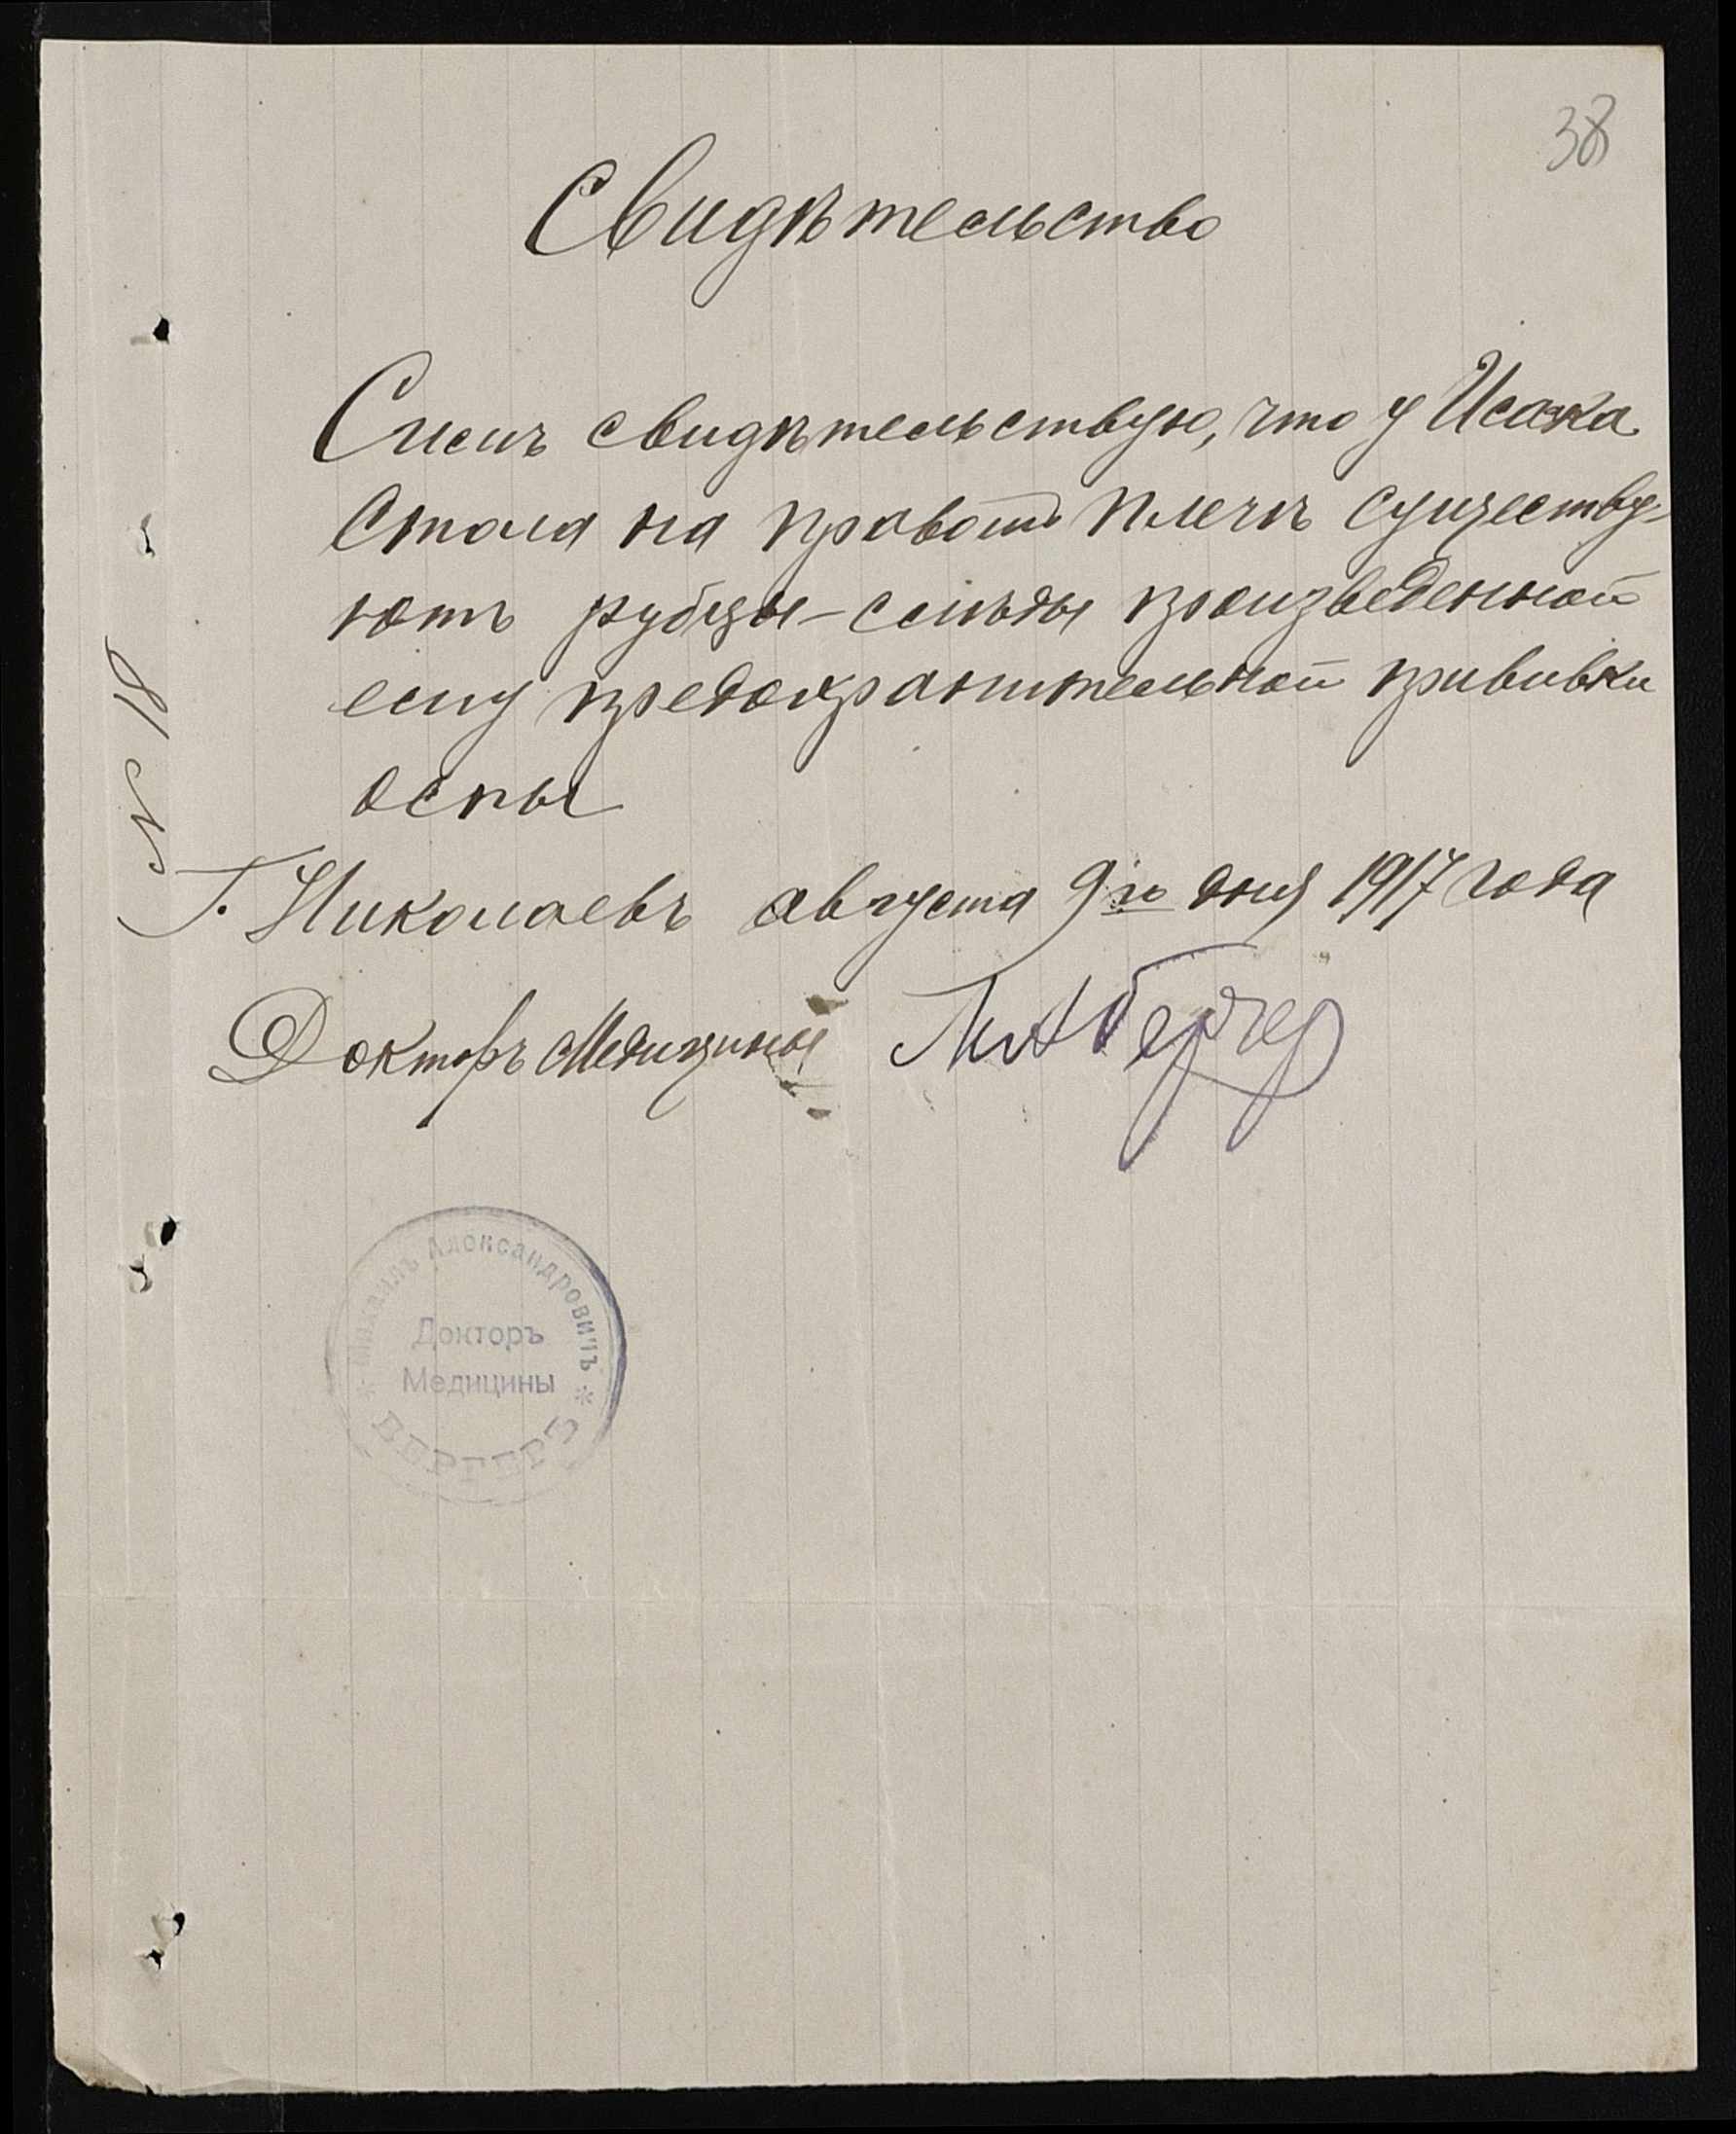 38
Свидѣтельство
Симъ свидѣтельствую, что у Исаака
Стола на правомъ плечѣ существу-
ютъ рубцы – слѣды произведенной
ему предохранительной прививки
оспы
Г. Николаевъ августа 9го дня 1917 года
Докторъ Медицины МАБергер
N 18
Михаилъ Александровичъ
Докторъ
Медицины
БЕРГЕРЪ